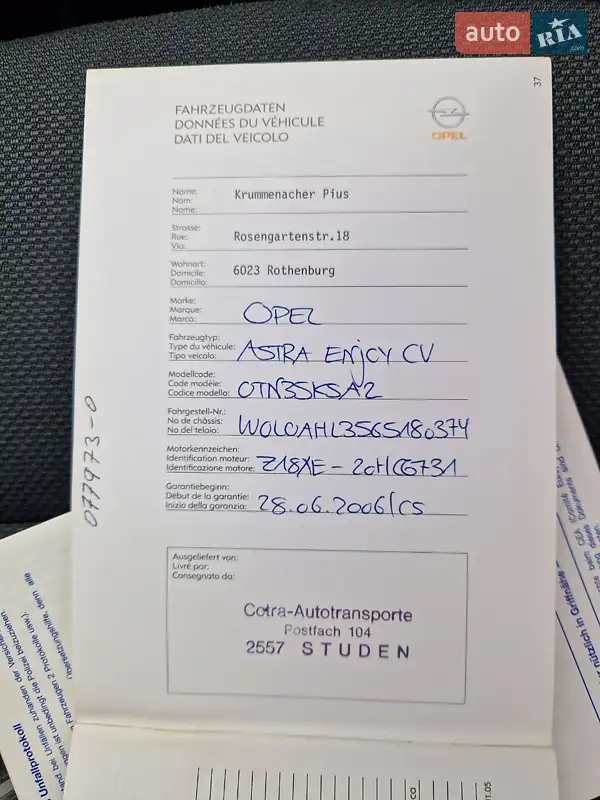 auto RIA .com
37
FAHRZEUGDATEN
DONNÉES DU VÉHICULE
DATI DEL VEICOLO
OPEL
Name: Krummenacher Pius
Nom:
Nome:
Strasse:
Rue: Rosengartenstr.18
Via:
Wohnort:
Domicile: 6023 Rothenburg
Domicilio:
Marke:
Marque: OPEL
Marca:
Fahrzeugtyp:
Type du véhicule: ASTRA ENJOY CV
Tipo veicolo:
Modellcode:
Code modèle: OTN35KSA2
Codice modello:
Fahrgestell-Nr.:
No de châssis: WOLOAHL3565180374
No del telaio:
Motorkennzeichen:
Identification moteur: Z18XE - 20HCG731
Identificazione motore:
Garantiebeginn:
Début de la garantie: 28.06.2006/CS
Inizio della garanzia:
077973-0
Ausgeliefert von:
Livré par:
Consegnato da:
Cotra-Autotransporte
Postfach 104
2557 STUDEN
Unfallprotokoll
1.05